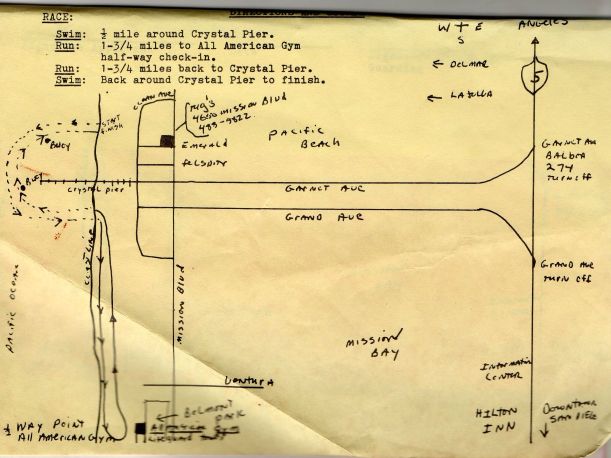 RACE:
Swim: ½ mile around Crystal Pier.
Run: 1-3/4 miles to All American Gym
half-way check-in.
Run: 1-3/4 miles back to Crystal Pier.
Swim: Back around Crystal Pier to finish.
W E
S
ANGELES
← DELMAR
5
← LAJOLLA
OCEAN AVE
4620 MISSION BLVD
488-9822
START
FINISH
BUOY
PACIFIC
BEACH
EMERALD
FELSPAR
GARNET AVE
BALBOA
274
TURN OFF
BUOY
Crystal pier
GARNET AVE
GRAND AVE
COAST LINE
PACIFIC OCEAN
MISSION BLVD
GRAND AVE
TURN OFF
MISSION
BAY
INFORMATION
CENTER
VENTURA
BELMONT
PARK
HILTON
INN
DOWNTOWN
SAN DIEGO
½ WAY POINT
All AMERICAN GYM